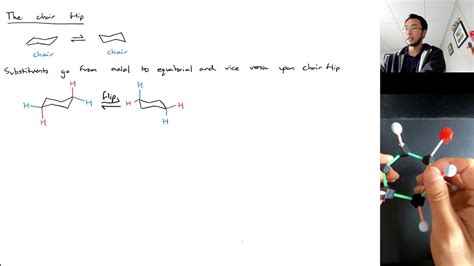 The chair flip
⇌
chair chair
Substituents go from axial to equatorial and vice versa upon chair flip
H H
H H flip H H
H H